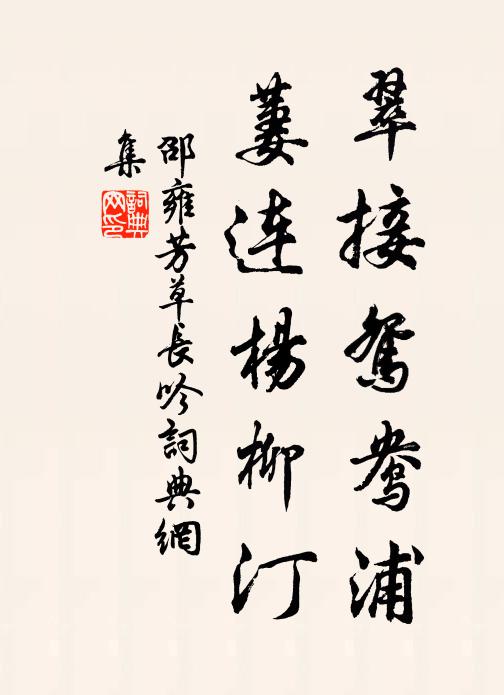 翠接鴛鴦浦
萋連楊柳汀
邵雍芳草長吟詞典網
集
詞典
网印